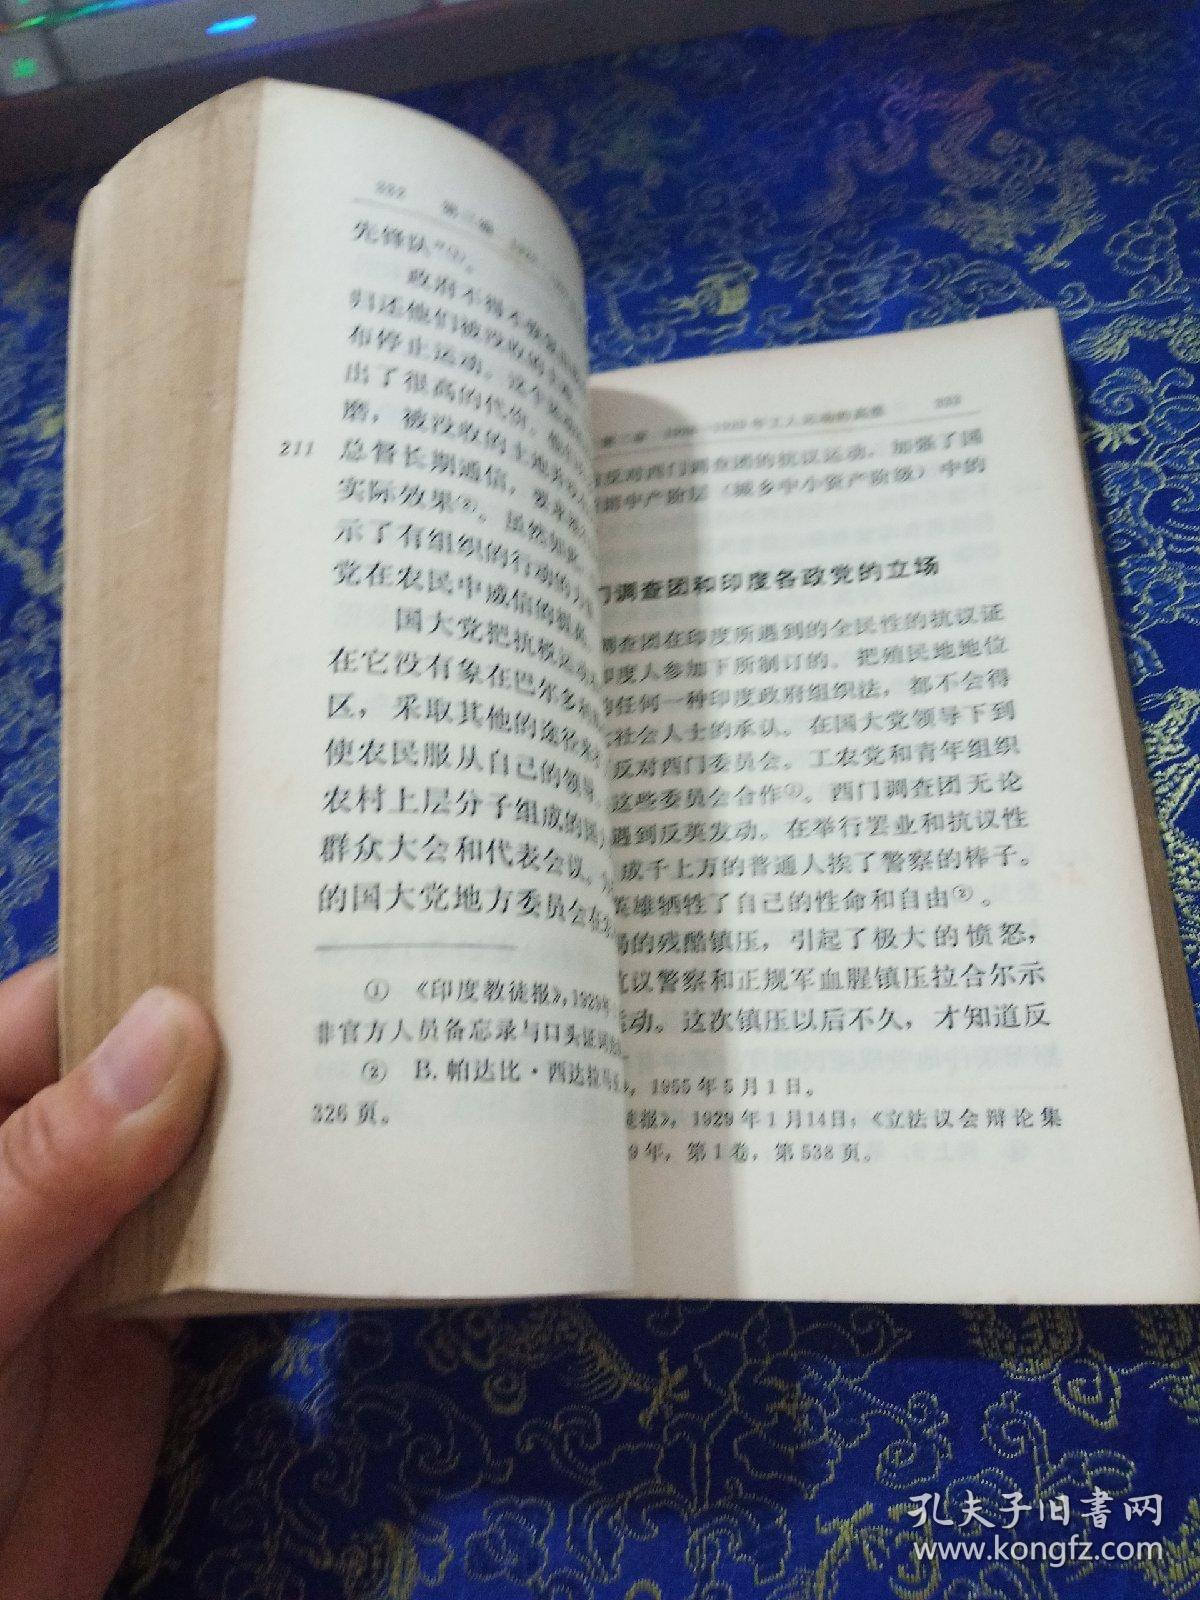 332 第二编
先锋队”①。
政府不得不
归还他们被没收的土地
布停止运动。这个运动
出了很高的代价。
磨，被没收的土地
211
总督长期通信，要求
实际效果②。虽然如此，
示了有组织的行动的力
党在农民中威信的
国大党把抗税运动
在它没有象在巴尔多利
区，采取其他的途径来
使农民服从自己的领导。
农村上层分子组成的国
群众大会和代表会议。
的国大党地方委员会在
① 《印度教徒报》，1929年
非官方人员备忘录与口头证词
② B. 帕达比·西达拉马
326 页。
年工人运动的高涨 333
反对西门调查团的抗议运动，加强了国
中产阶层（城乡中小资产阶级）中的
门调查团和印度各政党的立场
调查团在印度所遇到的全民性的抗议证
印度人参加下所制订的、把殖民地地位
的任何一种印度政府组织法，都不会得
社会人士的承认。在国大党领导下到
反对西门委员会。工农党和青年组织
这些委员会合作①。西门调查团无论
遇到反英发动。在举行罢业和抗议性
成千上万的普通人挨了警察的棒子。
英雄牺牲了自己的性命和自由②。
的残酷镇压，引起了极大的愤怒，
抗议警察和正规军血腥镇压拉合尔示
运动。这次镇压以后不久，才知道反
，1955年5月1日。
徒报》，1929年1月14日；《立法议会辩论集
9年，第1卷，第538页。
孔夫子旧书网
www.kongfz.com